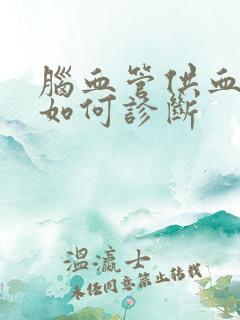 腦血管供血
如何診斷
溫瀛士
未经同意禁止转载